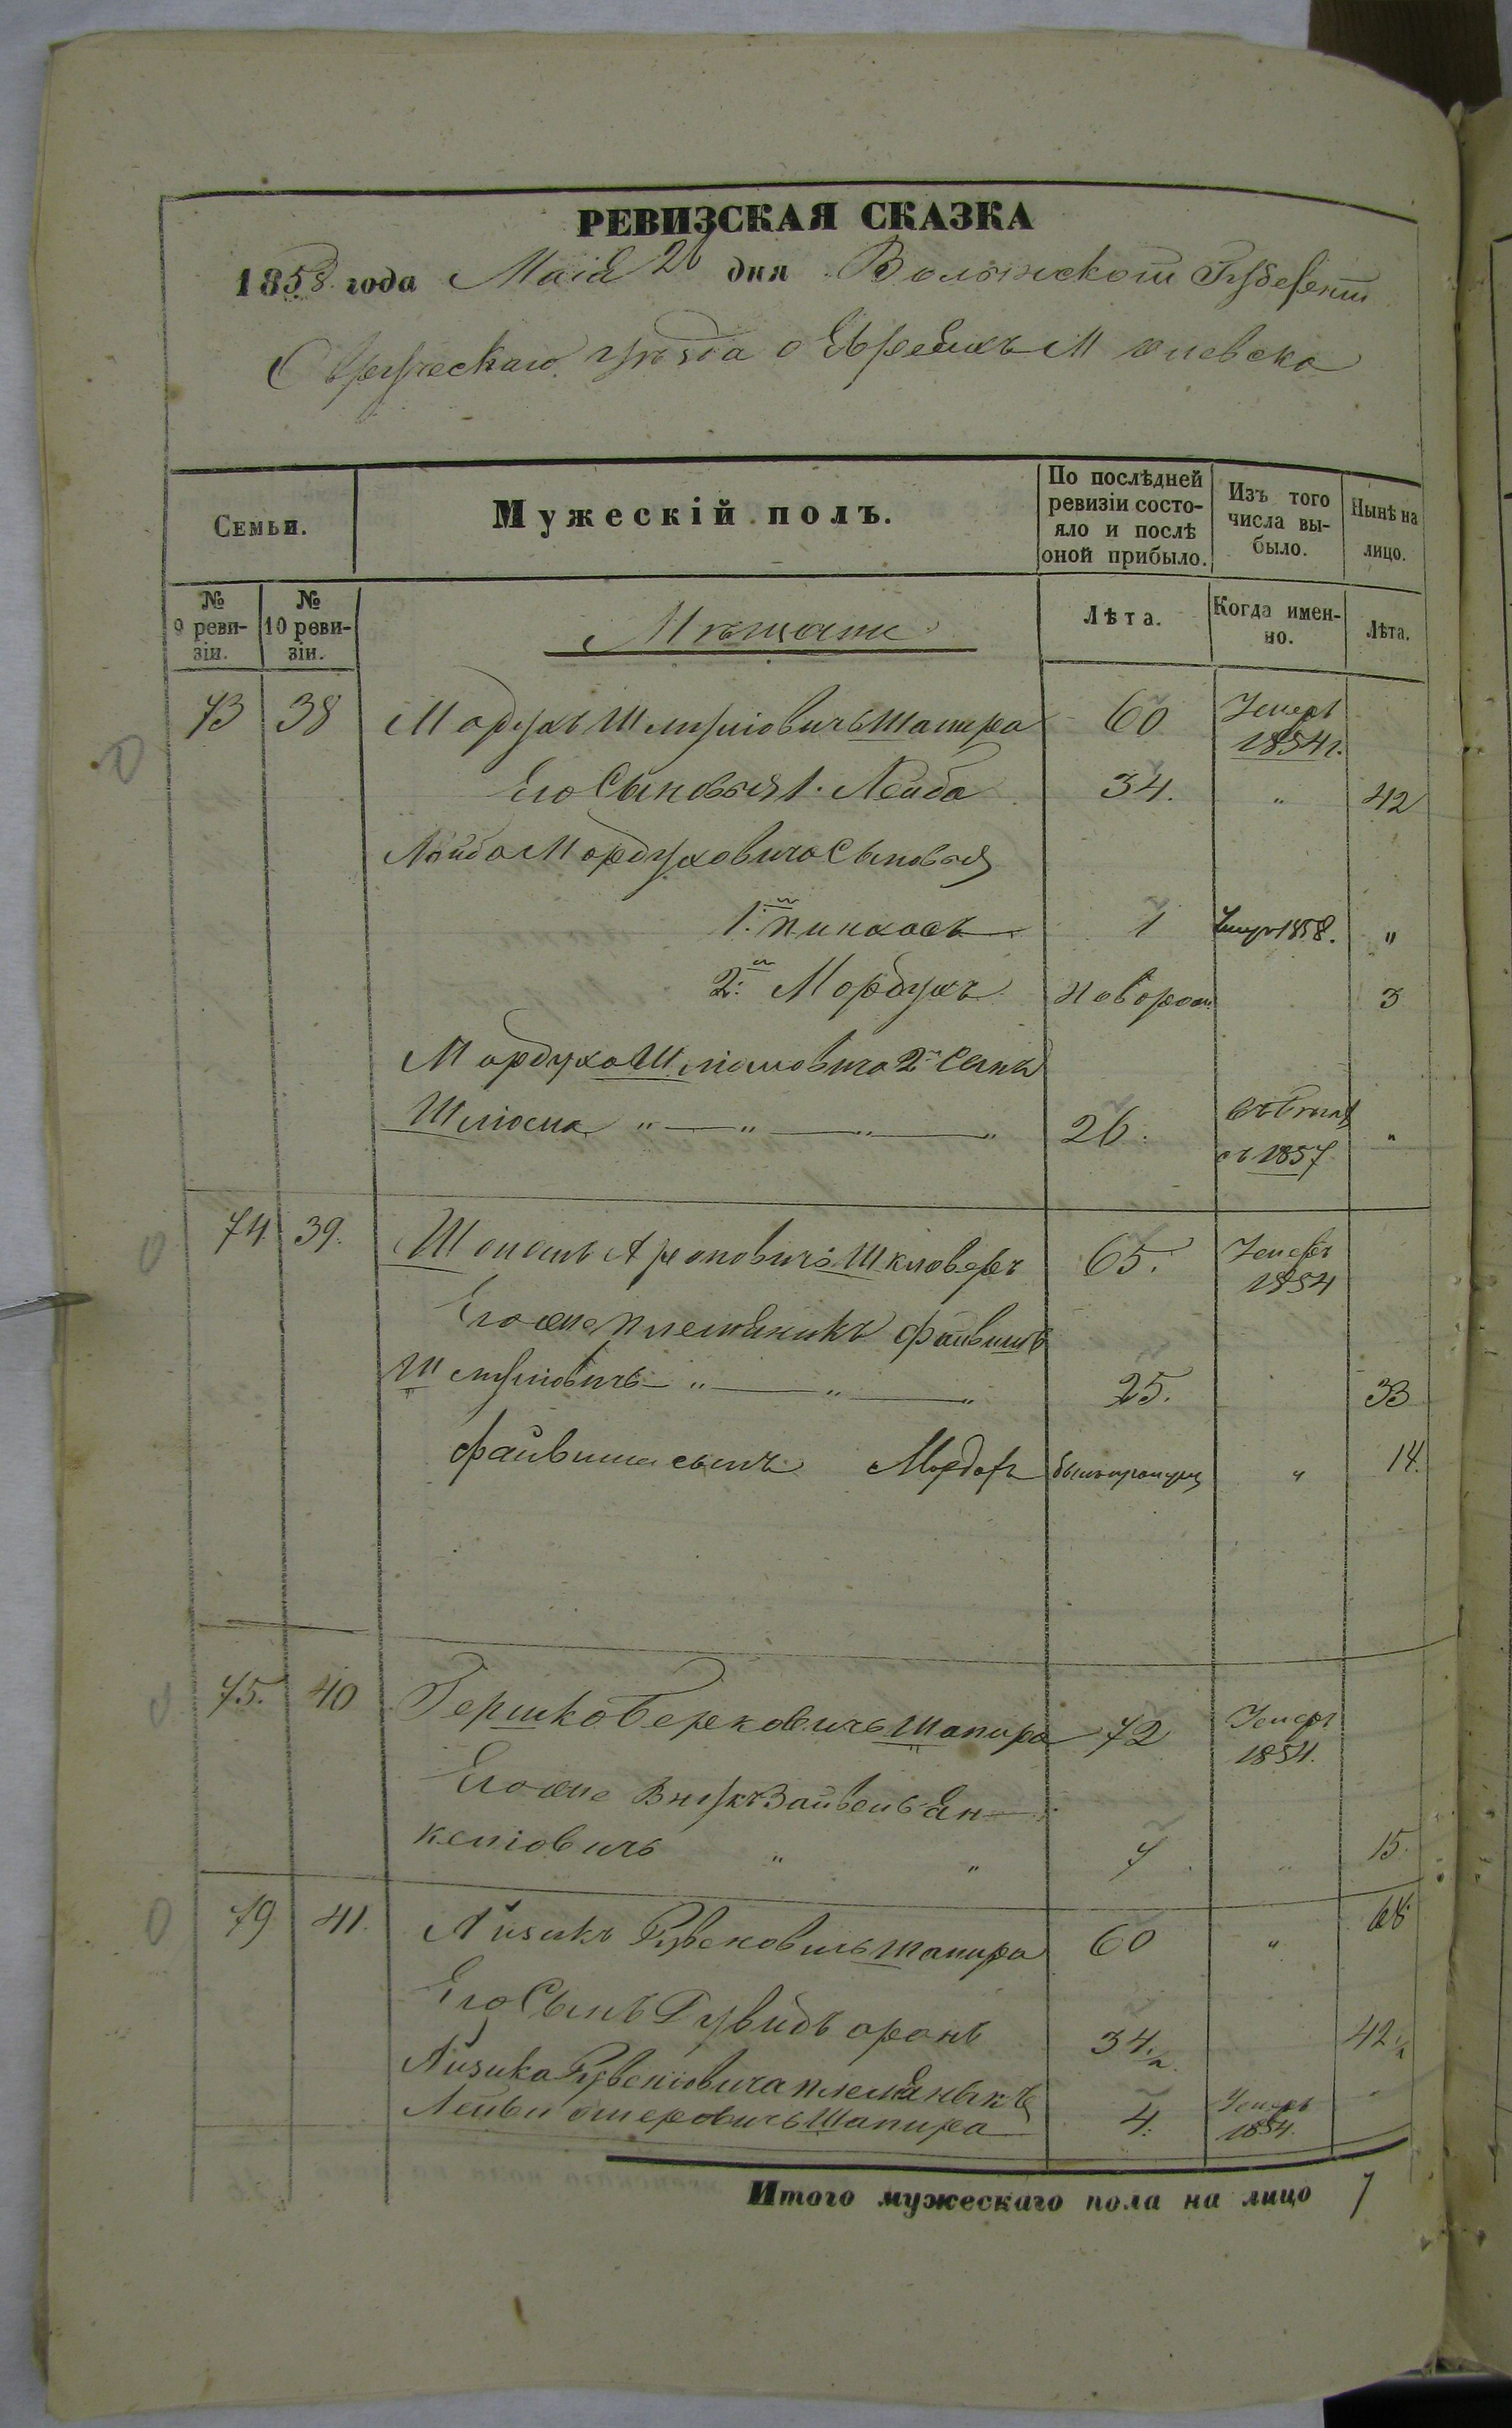 РЕВИЗСКАЯ СКАЗКА
1858 года Маія 26 дня Волынской Губерніи
Овручскаго уѣзда о Евреяхъ М Олевска
Семьи.
Мужескій полъ.
По послѣдней ревизіи состо-
яло и послѣ
оной прибыло.
Изъ того
числа вы-
было.
Нынѣ на
лицо.
№
9 реви-
зіи.
№
10 реви-
зіи.
Мѣщане
Лѣта.
Когда имен-
но.
Лѣта.
73 38 Мордухъ Шлиуміовичъ Шапира 60 Умеръ
1854 г.
Его Сыновья 1. Лейба 34. " 42
Лейба Мордуховича Сыновья
1.й Пинхасъ 1 Умеръ 1858. "
2.й Мордухъ Новорож 3
Мордуха Шліомовича 2й Сынъ
Шліома " — " — " — " 26.
съ 1857 "
74 39. Ароновичъ Шкловеръ 65. Умеръ
1854
Его же племяникъ Файвишъ
Шлиуміовичъ " — " — " 25. 33
Файвиша сынъ былъ пропущ " 14.
75. 40 Гершко Берковичъ Шапира 72 Умеръ
1854.
Его же Внукъ Зайвель Ян-
келіовичъ " " 7 " 15.
79 41. Айзикъ Рувеновичъ Шапира 60 " 68
Его Сынъ Рувидъ Оронъ 34 ½ 42 ½
Айзика Рувеніовича племяныкъ
Лейви Ошеровичъ Шапира 4. Умеръ
1854. "
Итого мужескаго пола на лицо 7